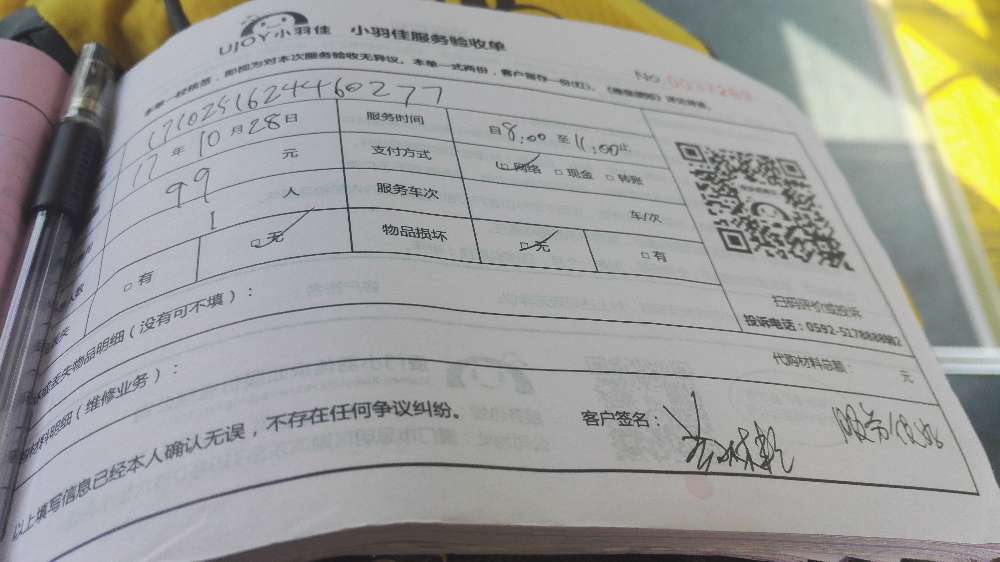 UJOY小羽佳 小羽佳服务验收单
本单一经核签，即视为对本次服务验收无异议。本单一式两份，客户留存一份(红)。
No.0037289
1710251624460277
17年10月28日 服务时间 自8:00至11:00止
99元 支付方式 网络 现金 转账
1人 服务车次 车/次
有 无 物品损坏 无 有
扫码评价或投诉
投诉电话：0592-5178888转2
丢失物品明细（没有可不填）：
材料明细（维修业务）： 代购材料总额： 元
以上填写信息已经本人确认无误，不存在任何争议纠纷。 客户签名：